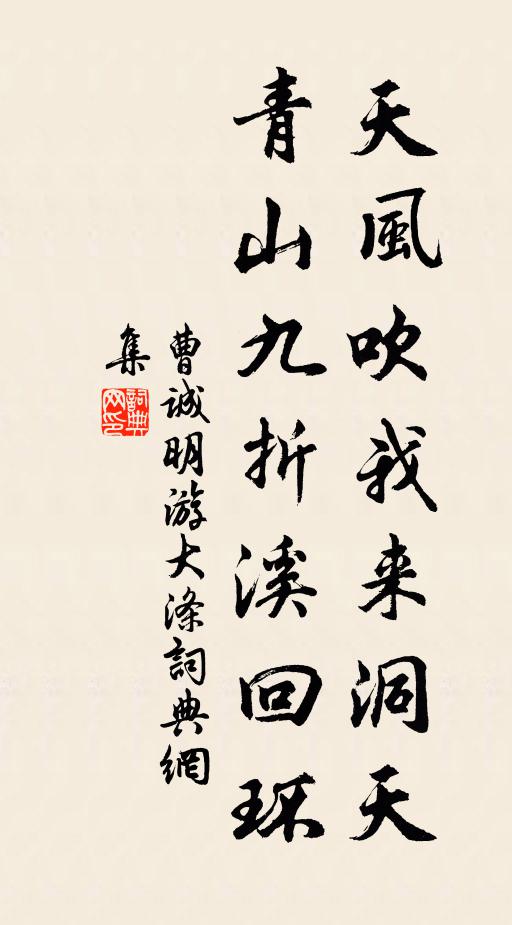 天風吹我来洞天
青山九折溪回环
曹誠明游大滌詞典網
集
詞典
网印